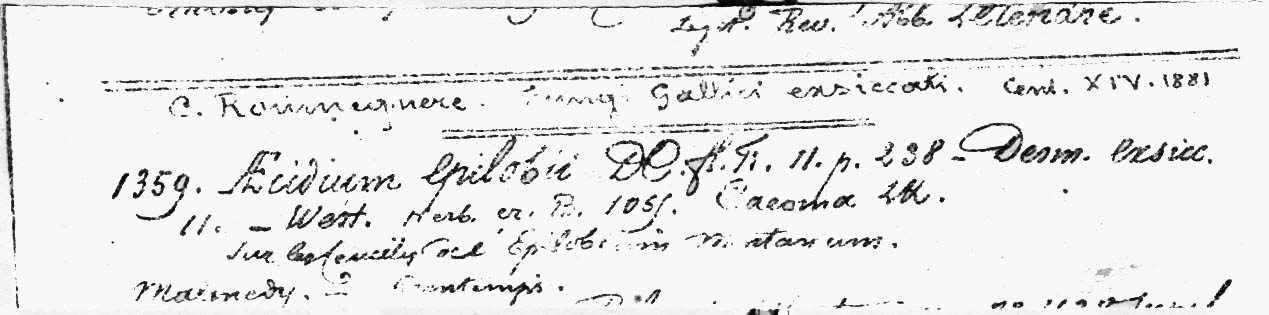 Leg. Rev. Abb. Letendre.
C. Roumeguere. Fungi Gallici exsiccati. Cent. XIV. 1881
1359. Æcidium Epilobii DC. fl. fr. II. p. 238 - Desm. exsicc.
11. - West. Herb. cr. B. 1051. Caeoma Lk.
Sur les feuilles de Epilobium montanum.
Malmedy. Printemps.